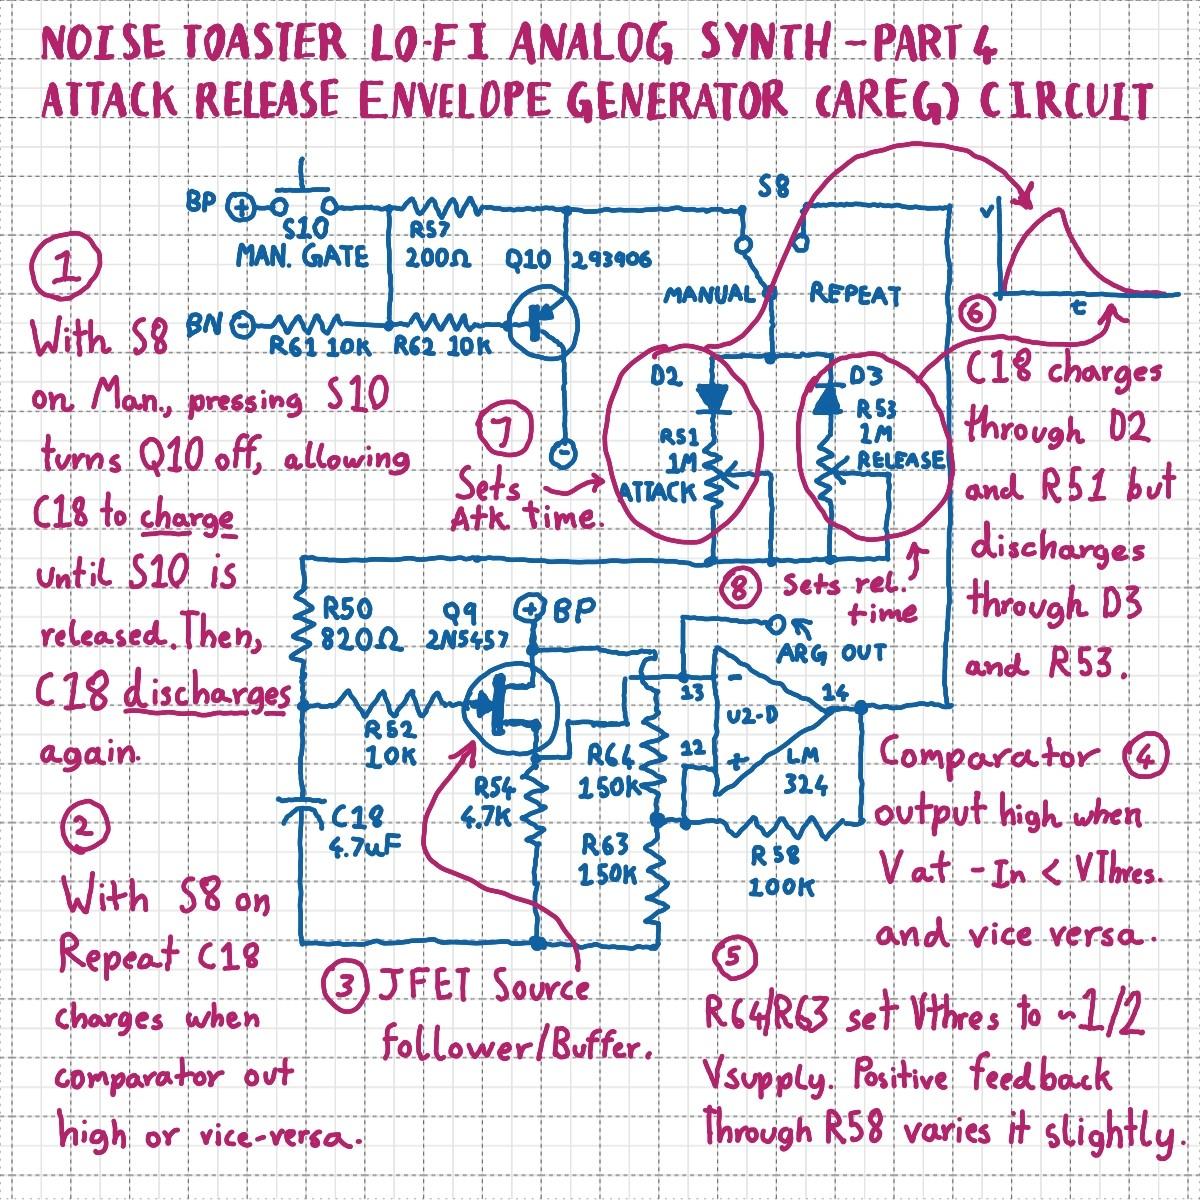 NOISE TOASTER LO-FI ANALOG SYNTH - PART 4
ATTACK RELEASE ENVELOPE GENERATOR (AREG) CIRCUIT
BP
S10
MAN. GATE
R57
200Ω
Q10
293906
S8
MANUAL
REPEAT
V
t
BN
R61 10K
R62 10K
1
With S8
on Man., pressing S10
turns Q10 off, allowing
C18 to charge
until S10 is
released. Then,
C18 discharges
again.
7
Sets
Atk time.
D2
R51
1M
ATTACK
D3
R53
1M
RELEASE
6
C18 charges
through D2
and R51 but
discharges
through D3
and R53.
8
Sets rel.
time
R50
820Ω
Q9
2N5457
BP
ARG OUT
R52
10K
13
-
12
+
14
U2-D
LM
324
R54
4.7K
R64
150K
R63
150K
R58
100K
C18
4.7uF
2
With S8 on
Repeat C18
charges when
comparator out
high or vice-versa.
3
JFET Source
follower/Buffer.
Comparator
4
output high when
V at -In < VThres.
and vice versa.
5
R64/R63 set Vthres to ~1/2
Vsupply. Positive feedback
Through R58 varies it slightly.